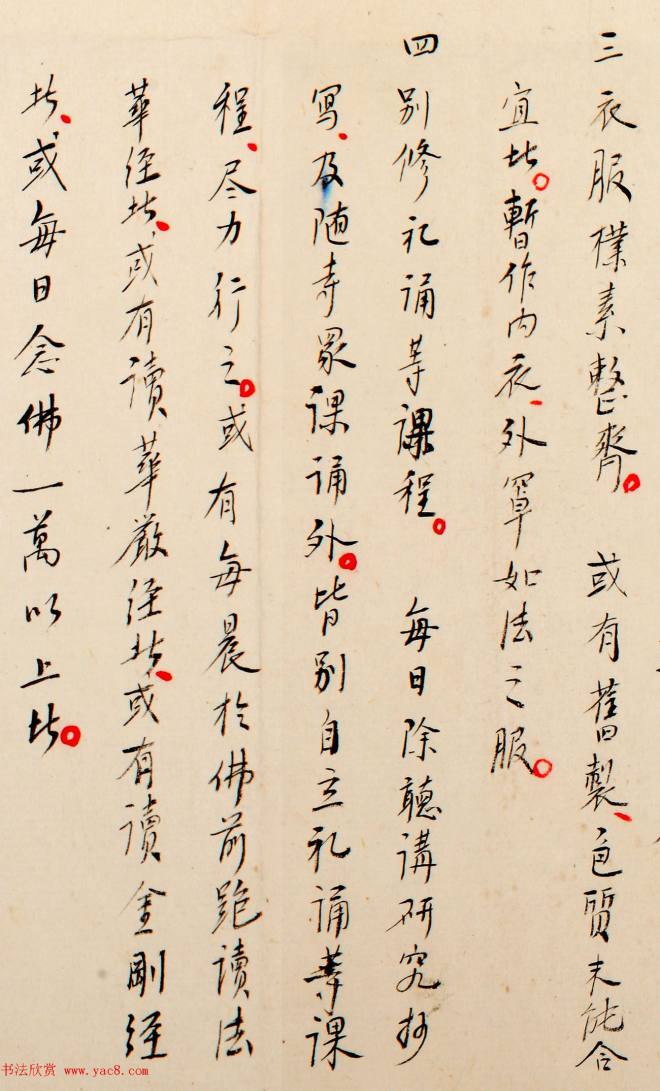 三 衣服樸素整齊。 或有舊製、色質未能合
宜者。暫作內衣、外罩如法之服。
四 別修礼誦等課程。 每日除聽講研究抄
寫、及随寺眾課誦外。皆別自立礼誦等課
程、尽力行之。或有每晨於佛前跪讀法
華经者、或有讀華嚴经者、或有讀金剛经
者、或每日念佛一萬以上者。
书法欣赏 www.yac8.com